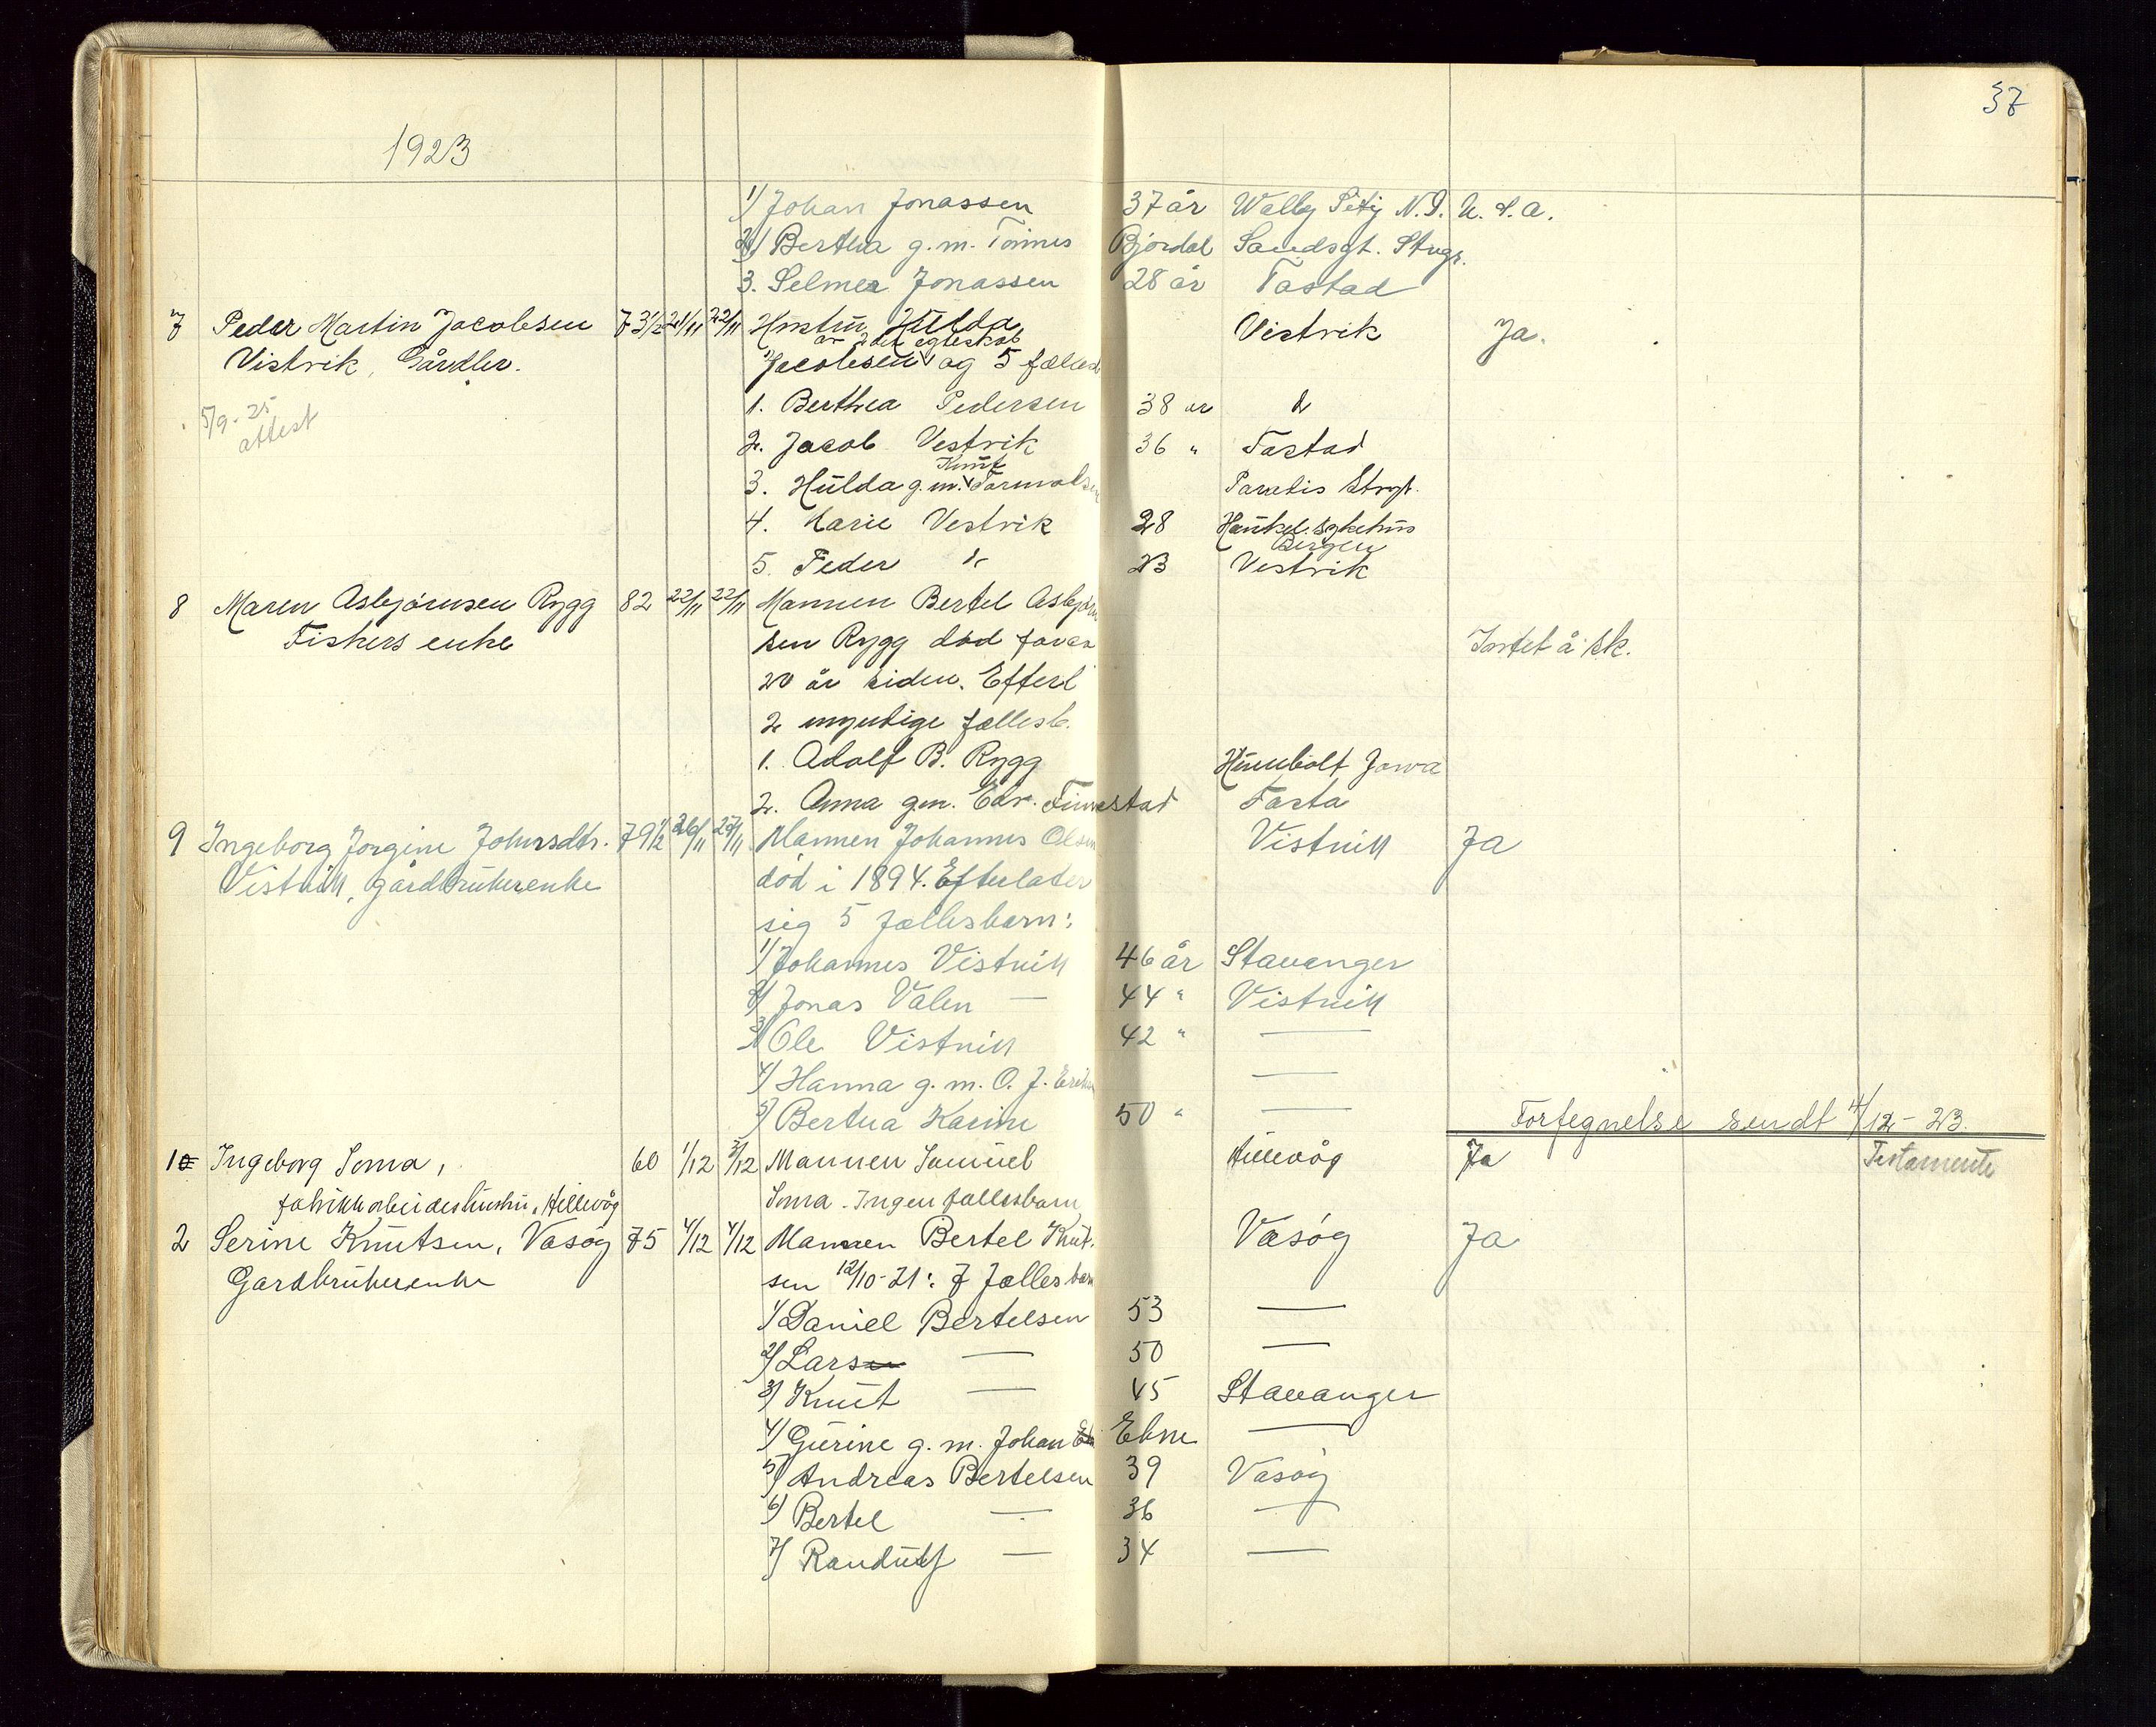 37
1923
1) Johan Jonassen 37 år Wally City N.D. U.S.A.
2) Bertha g.m. Tønnes Bjordal Sandsgt. Stvgr.
3. Selmer Jonassen 28 år Tastad
7 Peder Martin Jacobsen 73½ 21/11 22/11 Hustru Hulda Vistvik Ja.
av 2det egteskab
Vistvik, Gårdbr. Jacobsen og 5 fælles
5/9-25 attest
1. Berthea Pedersen 38 år d
2. Jacob Vestvik 36 " Tastad
Knut
3. Hulda g.m. Tormods Paradis Stvgr.
4. Marie Vestvik 28 Haukel. sykehus
Bergen
5. Peder d 23 Vestvik
8 Maren Asbjørnsen Rygg 82 22/11 22/11 Mannen Bertel Asbjørn
Fiskers enke sen Rygg død for ca Intet å sk.
20 år siden. Efterl
2 myndige fællesb.
1. Adolf B. Rygg Humbolt Jowa
2. Anna gm. Edv. Finnestad Tasta
9 Ingeborg Jorgine Johnsdtr. 79½ 26/11 27/11 Mannen Johannes Olsen Vistnik Ja
Vistnik, gårdbrukerenke død i 1894. Efterlater
sig 5 fællesbarn:
1) Johannes Vistnik 46 år Stavanger
2) Jonas Valen — 44 " Vistnik
3) Ole Vistnik 42 " —
4) Hanna g.m. O. J. —
5) Bertha Karine 50 " —
Fortegnelse sendt 4/12-23.
1 Ingeborg Soma, 60 1/12 3/12 Mannen Samuel Hillevåg Ja Testamente
fabrikkarbeideshustru, Hillevåg Soma. Ingen fællesbarn
2 Serine Knutsen, Vasøy 75 4/12 4/12 Mannen Bertel Knut- Vasøy Ja
Gardbrukerenke sen 12/10-21: 7 fællesbarn
1) Daniel Bertelsen 53 —
2) Lars — 50 —
3) Knut — 45 Stavanger
4) Gurine g.m. Johan Ebne —
5) Andreas Bertelsen 39 Vasøy
6) Bertel — 36 —
7) Randulf — 34 —